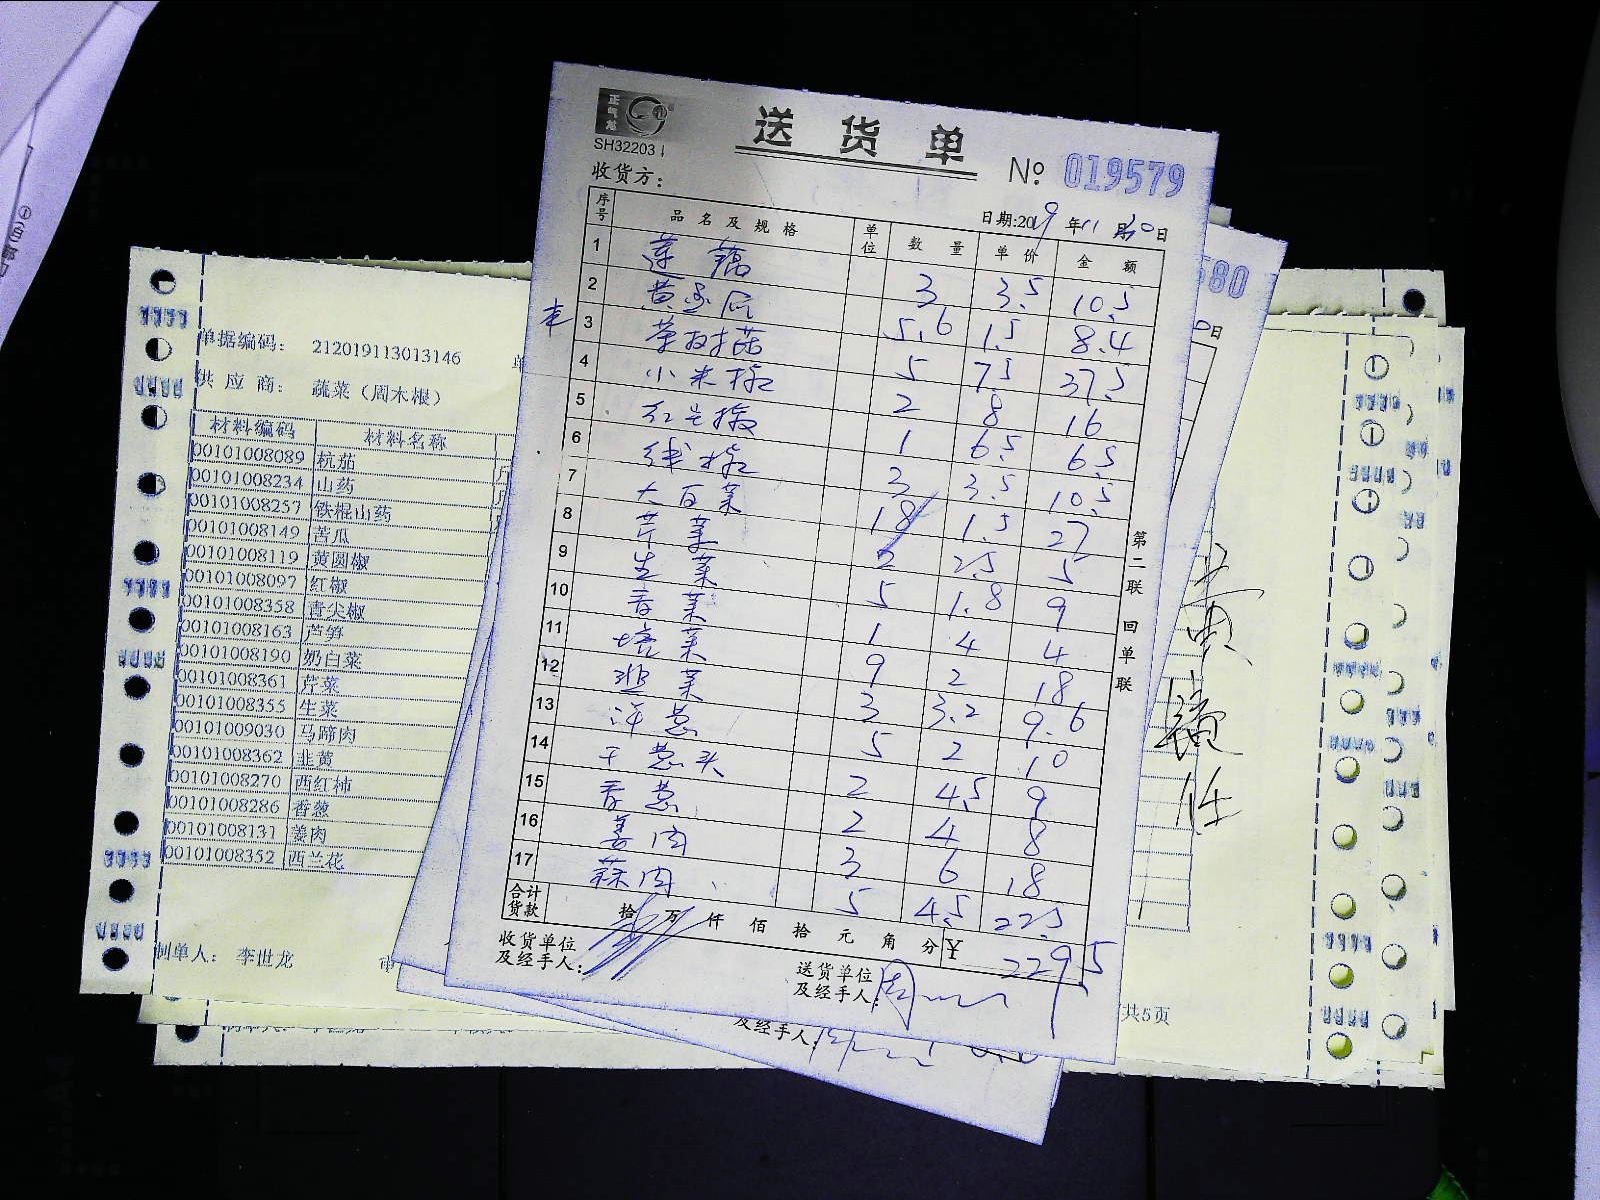 正气龙
SH32203
送货单
№ 019579
收货方：
日期:2019年11月30日
序号 品名及规格 单位 数量 单价 金额
1 莲藕 3 3.5 10.5
2 黄圣瓜 5.6 1.5 8.4
3 茶树菇 5 7.5 37.5
4 小米椒 2 8 16
5 红尖椒 1 6.5 6.5
6 线椒 3 3.5 10.5
7 大白菜 18 1.5 27
8 芹菜 2 2.5 5
9 生菜 5 1.8 9
10 香菜 1 4 4
11 塘菜 9 2 18
12 3 3.2 9.6
13 洋葱 5 2 10
14 干葱头 2 4.5 9
15 香葱 2 4 8
16 姜肉 3 6 18
17 蒜肉 5 4.5 22.5
合计货款 拾 万 仟 佰 拾 元 角 分 ¥ 229.5
收货单位及经手人：
送货单位及经手人：周
第二联 回单联
580
日
及经手人：
单据编码： 212019113013146 单
供应商： 蔬菜（周木根）
材料编码 材料名称
00101008089 杭茄
00101008234 山药
00101008257 铁棍山药
00101008149 苦瓜
00101008119 黄圆椒
00101008097 红椒
00101008358 青尖椒
00101008163 芦笋
00101008190 奶白菜
00101008361 芹菜
00101008355 生菜
00101009030 马蹄肉
00101008362 韭黄
00101008270 西红柿
00101008286 香葱
00101008131 姜肉
00101008352 西兰花
制单人： 李世龙
共5页